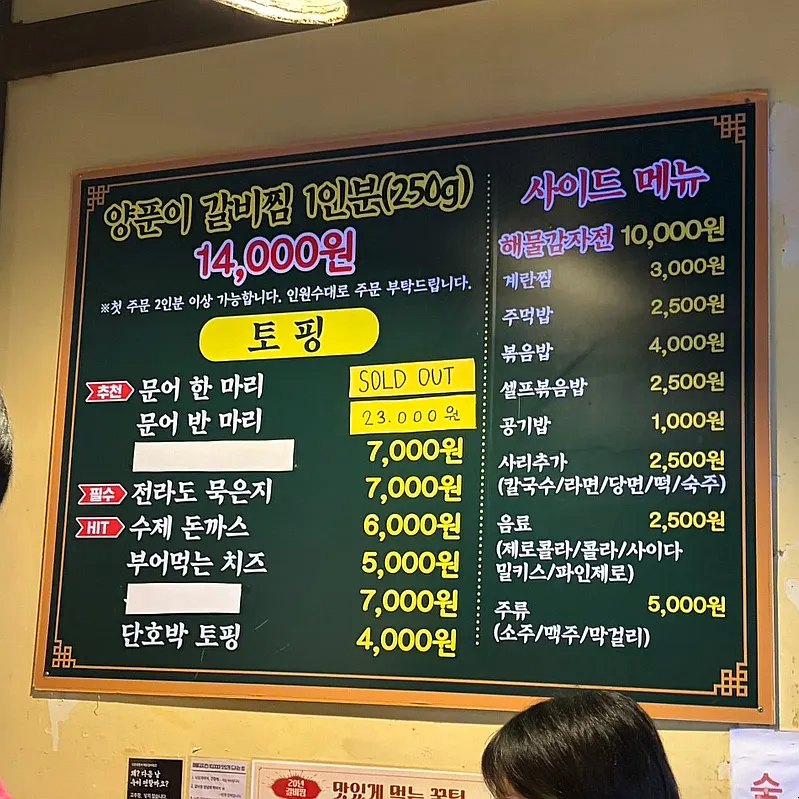 양푼이 갈비찜 1인분(250g)
14,000원
※첫 주문 2인분 이상 가능합니다. 인원수대로 주문 부탁드립니다.
토핑
추천 문어 한 마리 SOLD OUT
문어 반 마리 23.000원
7,000원
필수 전라도 묵은지 7,000원
HIT 수제 돈까스 6,000원
부어먹는 치즈 5,000원
7,000원
단호박 토핑 4,000원
사이드 메뉴
해물감자전 10,000원
계란찜 3,000원
주먹밥 2,500원
볶음밥 4,000원
셀프볶음밥 2,500원
공기밥 1,000원
사리추가 2,500원
(칼국수/라면/당면/떡/숙주)
음료 2,500원
(제로콜라/콜라/사이다
밀키스/파인제로)
주류 5,000원
(소주/맥주/막걸리)
20년
갈비찜
맛있게 먹는 꿀팁